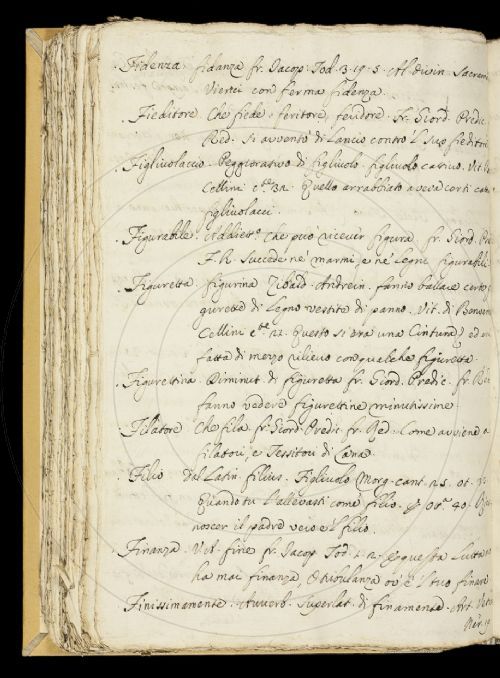 Fidenza. fidanza fr. Jacop. Tod. 3. 19. 5. Al divin Sacram
Viensi con ferma fidenza.
Fieditore. Che fiede, feritore, feridore. fr. Giord. Predic.
Red. si avventò di Lancio contro 'l suo fieditore
Figliuolaccio. Peggiorativo di figliuolo. figliuolo cattivo. Vit.
Cellini 32. Quello arrabbiato aveva certi
figliuolacci.
Figurabile. Addiett. che può ricever figura. fr. Giord. Pre
F. R. succede ne' marmi, e ne' legni figurabili
Figuretta. figurina Zibald. Andrein. fanno ballare certe
gurette di Legno vestite di panno. Vit. di Benven
Cellini 21. Questo si era una Cintura ed
fatta di mezzo rilievo con qualche figuretta.
Figurettina. Diminut. di figuretta fr. Giord. Predic. fr.
fanno vedere figurettine minutissime.
Filatore. Che fila. fr. Giord. Predic. fr. Red. Come avviene a
filatori, e Tessitori di Lana.
Filio. Dal Latin. filius. Figliuolo Morg. cant. 25. ot.
Quando tu l'allevasti come filio. 40.
noscer il padre vero e 'l filio.
Finanza. V. A. fine fr. Jacop. Tod. questa
ha mai finanza, tribulanza ov' è 'l tuo finare
Finissimamente. Avverb. Superlat. di finamente. Art. Vetr.
Ner.